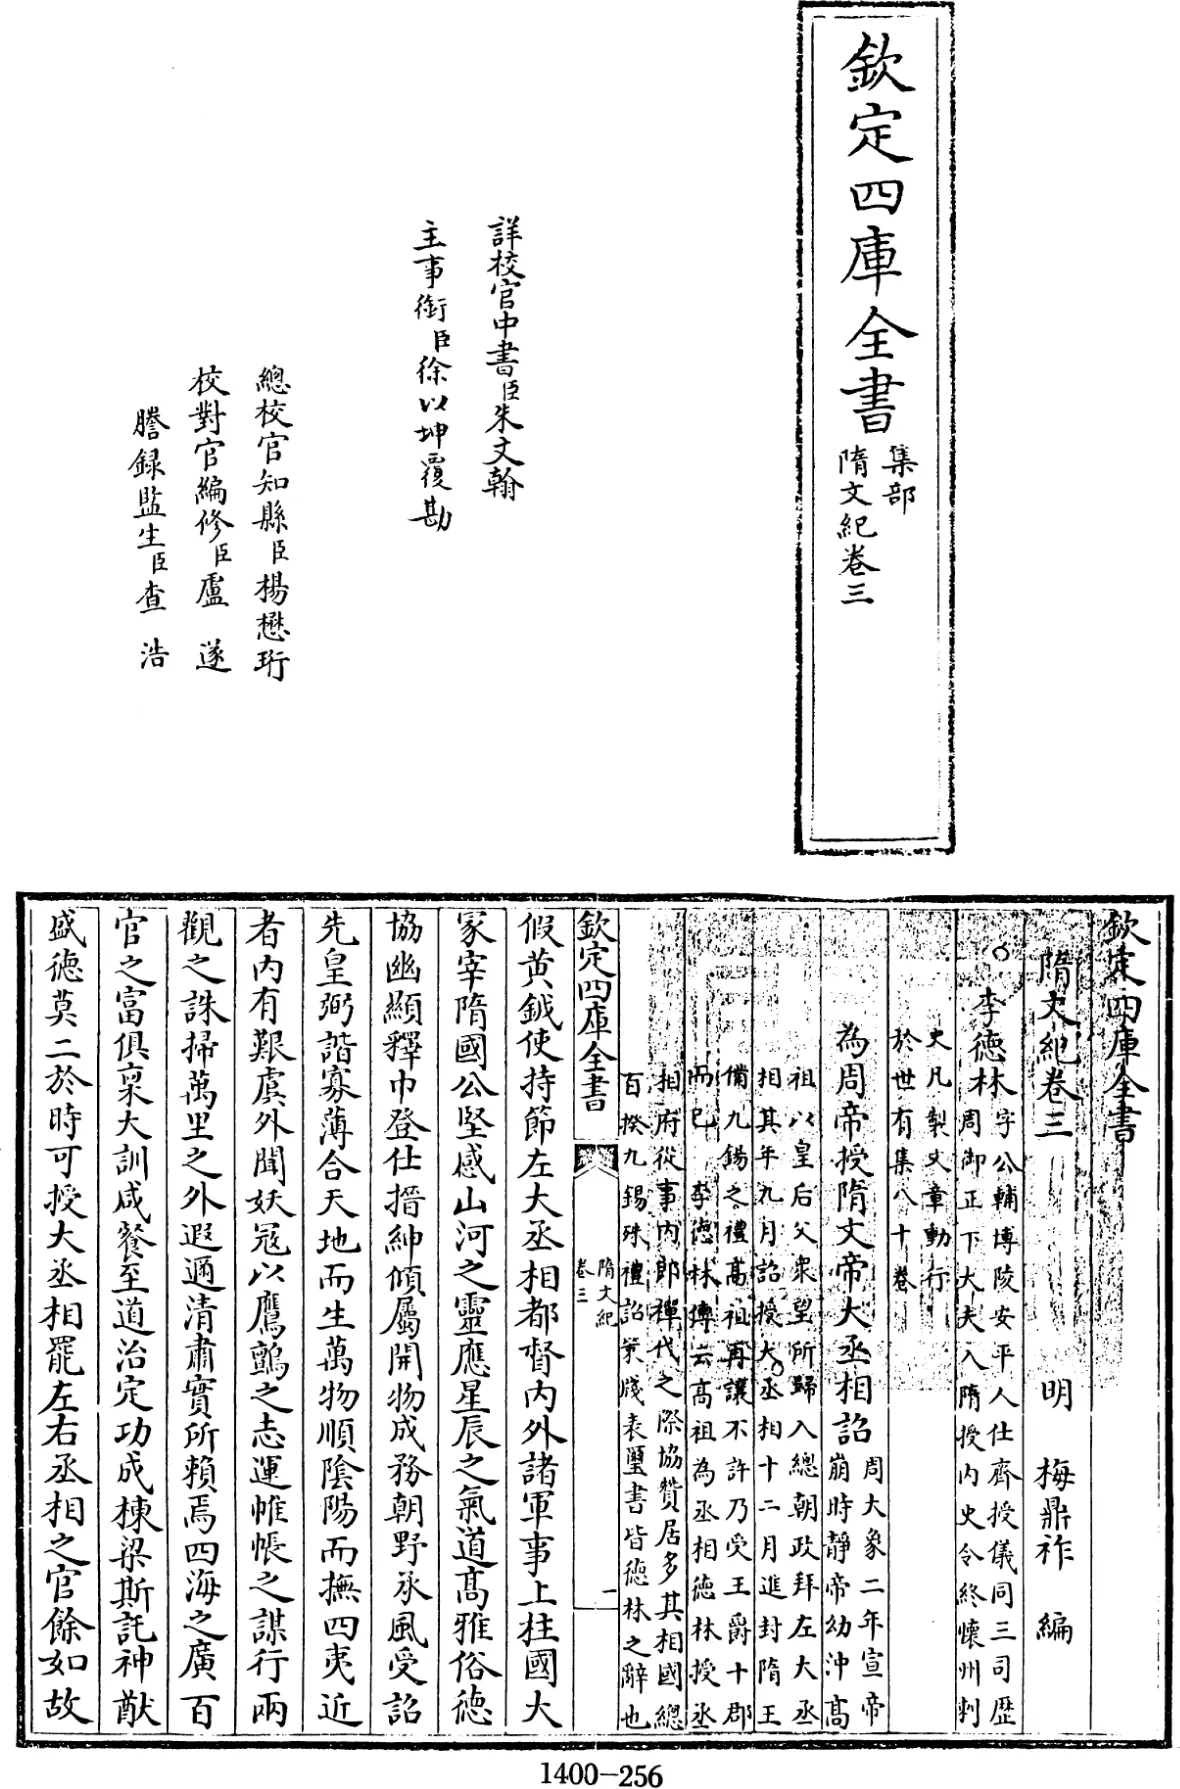 欽定四庫全書
集部
隋文紀卷三
詳校官中書臣朱文翰
主事銜臣徐以坤覆勘
總校官知縣臣楊懋珩
校對官編修臣盧遂
謄録監生臣查浩
欽定四庫全書
隋文紀卷三
明 梅鼎祚 編
李德林
字公輔博陵安平人仕齊授儀同三司歴
周御正下大夫入隋授内史令終懷州刺
史凡製文章動行
於世有集八十卷
為周帝授隋文帝大丞相詔
周大象二年宣帝
崩時靜帝幼沖髙
祖以皇后父衆望所歸入總朝政拜左大丞
相其年九月詔授大丞相十二月進封隋王
備九錫之禮髙祖再讓不許乃受王爵十郡
而已 李德林傳云髙祖為丞相德林授丞
相府從事内郎禪代之際協贊居多其相國總
百揆九錫殊禮詔策牋表璽書皆德林之辭也
欽定四庫全書
隋文紀
卷三
一
假黄鉞使持節左大丞相都督内外諸軍事上柱國大
冢宰隋國公堅感山河之靈應星辰之氣道髙雅俗德
協幽顯釋巾登仕搢紳傾屬開物成務朝野承風受詔
先皇弼諧寡薄合天地而生萬物順陰陽而撫四夷近
者内有艱虞外聞妖寇以鷹鸇之志運帷帳之謀行兩
觀之誅掃萬里之外遐邇清肅實所賴焉四海之廣百
官之富俱稟大訓咸餐至道治定功成棟梁斯託神猷
盛德莫二於時可授大丞相罷左右丞相之官餘如故
1400-256